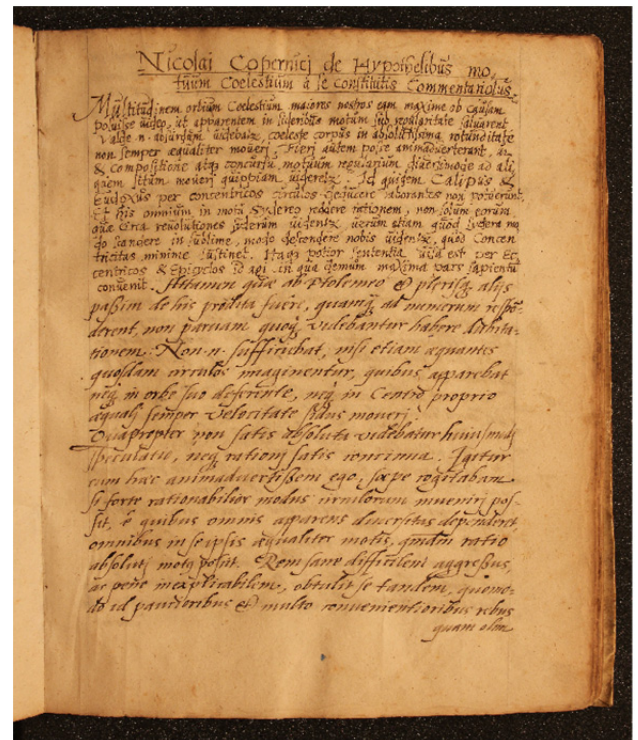 Nicolai Copernici de Hypothesibus mo,
tuum Coelestium à se constitutis Commentariolus.
Multitudinem orbium Coelestium maiores nostros eam maxime ob causam
posuisse uideo, ut apparentem in sideribus motum sub regularitate saluarent
Valde .n. absurdum uidebatz coeleste corpus in absolutissima rotunditate
non semper æqualiter moueri. Fieri autem posse animaduerterant, ut
& compositione atq concursu motuum regularium diuersimode ad ali
quem situm moueri quippiam uideretz. Id quidem Calipus &
Eudoxus per concentricos circulos deducere laborantes non potuerunt
Et his omnium in motu sydereo reddere rationem, non solum eorum
quæ circa reuolutiones syderum uidentz uerum etiam quod sydera mo
do scandere in sublime, modo descendere nobis uidentz, quod Concen
tricitas minime sustinet. Itaq potior sententia uisa est per Ec
centricos & Epiciclos id agi in qua demum maxima pars sapientu
conuenit. Attamen quæ ab Ptolemeo & plerisq alijs
passim de his prodita fuere, quamq ad numerum respō
derent, non paruam quoq videbantur habere dubita-
tionem. Non .n. sufficiebat, nisi etiam æquantes
quosdam circulos imaginentur, quibus apparebat
neq in orbe suo deferente, neq in Centro proprio
æquali semper velocitate sidus moueri.
Quapropter non satis absoluta videbatur huiusmodi
speculatio, neq rationi satis concinna. Igitur
cum hæc animaduertissem ego, sæpe cogitabam
si forte rationabilior modus circulorum inueniri pos-
sit, è quibus omnis apparens diuersitas dependeret
omnibus in seipsis æqualiter motis, quēadm ratio
absoluti motq poscit. Rem sane difficilem aggressus,
ac pene inexplicabilem, obtulit se tandem, quomo-
do id paucioribus & multo conuenientioribus rebus
quam olim